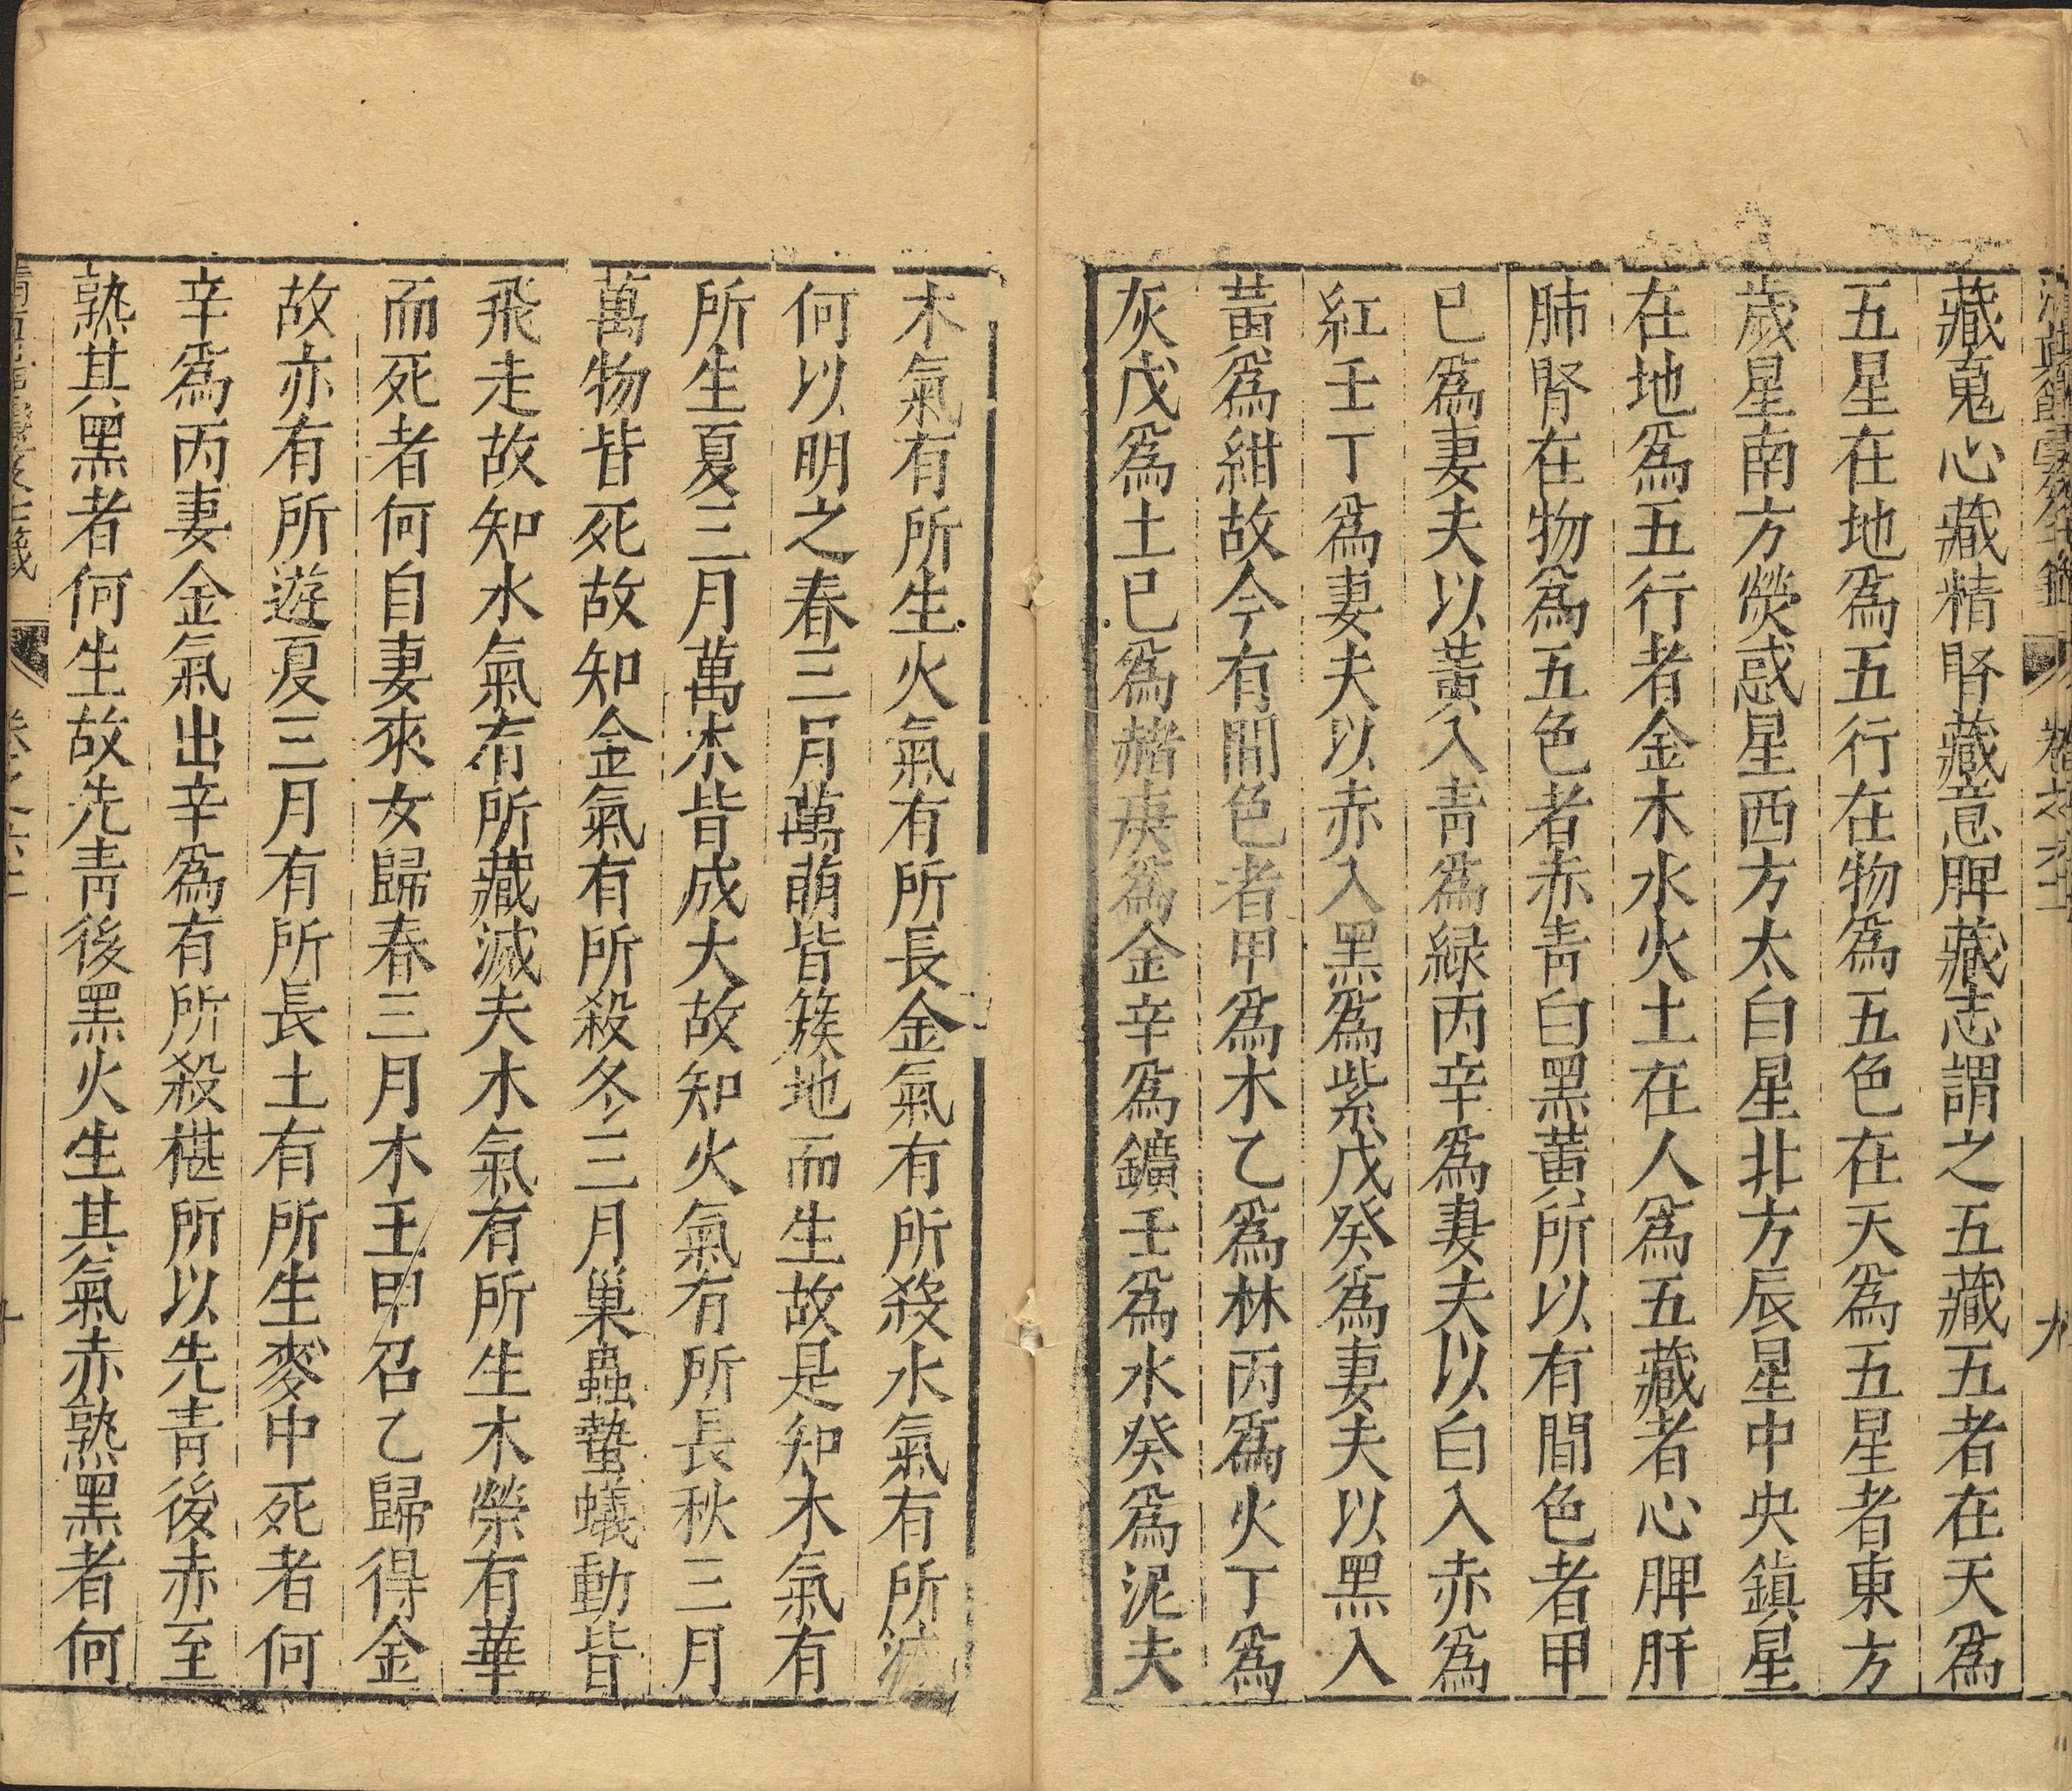 藏䰟心藏精腎藏意脾藏志謂之五藏五者在天爲
五星在地爲五行在物爲五色在天爲五星者東方
歲星南方熒惑星西方太白星北方辰星中央鎮星
在地爲五行者金木水火土在人爲五藏者心脾肝
肺腎在物爲五色者赤靑白黑黃所以有間色者甲
已爲妻夫以黃入靑爲緑丙辛爲妻夫以白入赤爲
紅壬丁爲妻夫以赤入黑爲紫戊癸爲妻夫以黑入
黃爲紺故今有間色者甲爲木乙爲林丙爲火丁爲
灰戊爲土已爲赭庚爲金辛爲鑛壬爲水癸爲泥夫
木氣有所生火氣有所長金氣有所殺水氣有所滅
何以明之春三月萬萌皆簇地而生故是知木氣有
所生夏三月萬木皆成大故知火氣有所長秋三月
萬物皆死故知金氣有所殺冬三月巢蟲蟄蟻動皆
飛走故知水氣有所藏滅夫木氣有所生木榮有華
而死者何自妻來女歸春三月木王甲召乙歸得金
故亦有所遊夏三月有所長土有所生麥中死者何
辛爲丙妻金氣出辛爲有所殺椹所以先靑後赤至
熟其黑者何生故先靑後黑火生其氣赤熟黑者何
卷之六十